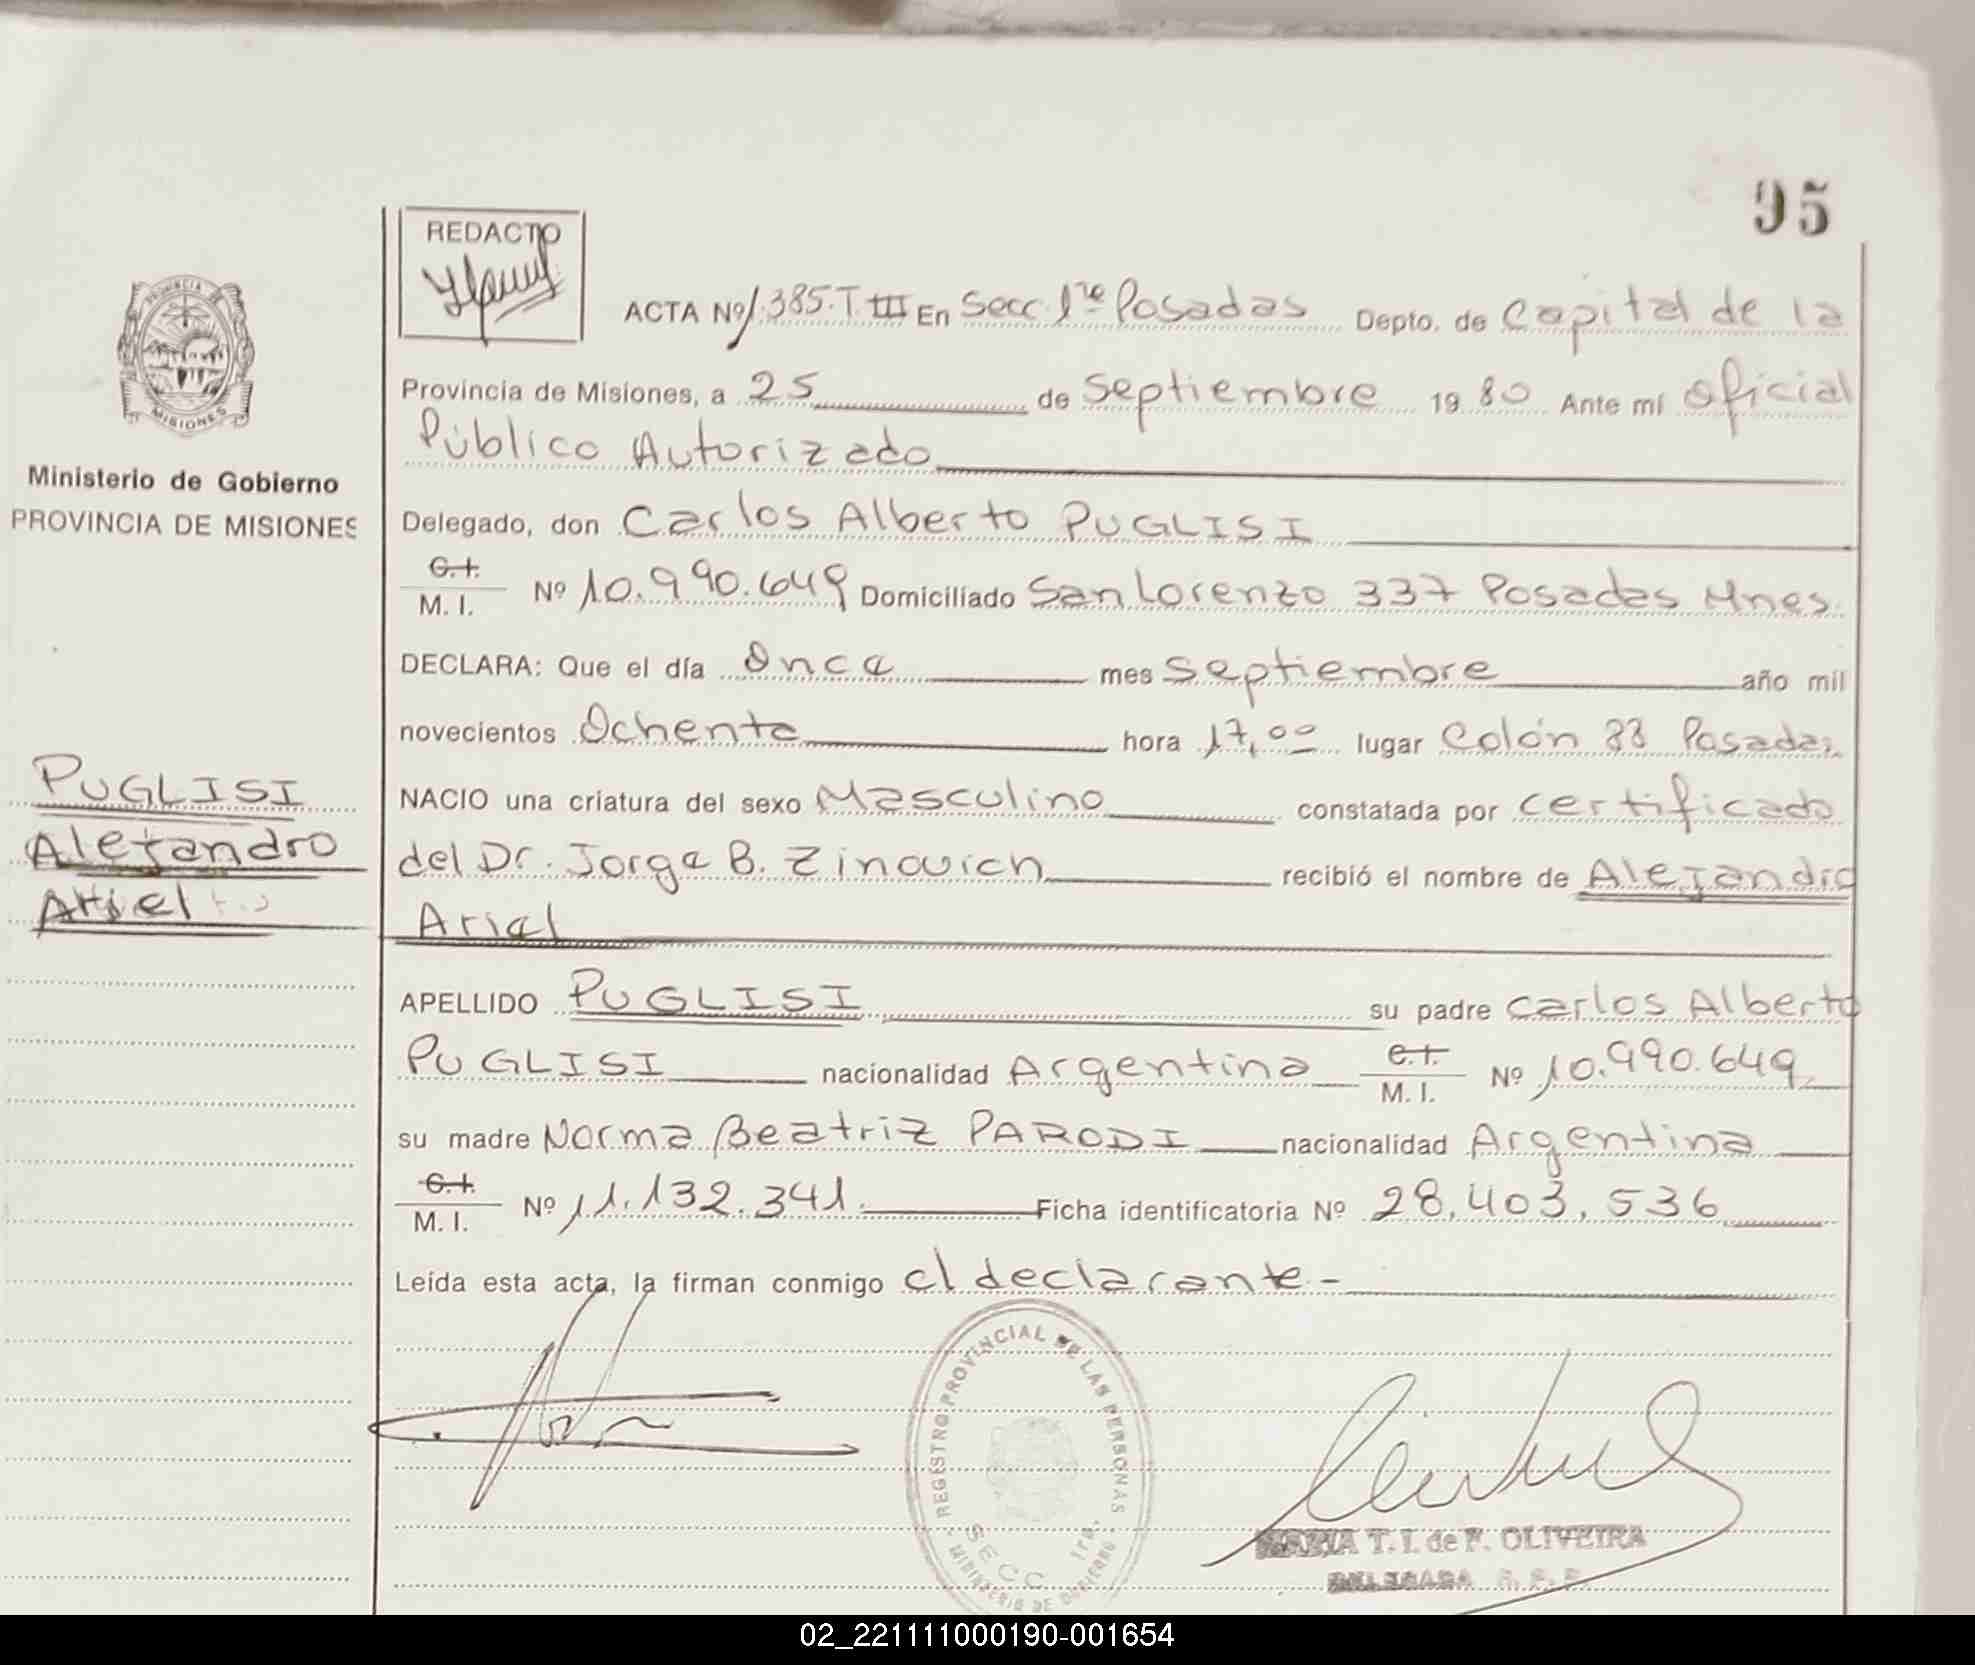 95
REDACTO
PROVINCIA DE
MISIONES
Ministerio de Gobierno
PROVINCIA DE MISIONES
ACTA Nº 1.385.T.III En Secc. 1ra Posadas Depto. de Capital de la
Provincia de Misiones, a 25 de Septiembre 19 80 Ante mí Oficial
Público Autorizado
Delegado, don Carlos Alberto PUGLISI
C.I. M. I. Nº 10.990.649 Domiciliado San Lorenzo 337 Posadas Mnes.
DECLARA: Que el día Once mes Septiembre año mil
novecientos Ochenta hora 17,00 lugar Colón 33 Posadas
NACIO una criatura del sexo Masculino constatada por certificado
del Dr. Jorge B. Zinovich recibió el nombre de Alejandro
Ariel
PUGLISI
Alejandro
Ariel
APELLIDO PUGLISI su padre Carlos Alberto
PUGLISI nacionalidad Argentina C.I. M. I. Nº 10.990.649
su madre Norma Beatriz PARODI nacionalidad Argentina
C.I. M. I. Nº 11.132.341. Ficha identificatoria Nº 28.403.536
Leída esta acta, la firman conmigo el declarante -
REGISTRO PROVINCIAL DE LAS PERSONAS
SECC 1ra.
MINISTERIO DE GOBIERNO
MARIA T. I. de F. OLIVEIRA
DELEGADA
02_221111000190-001654